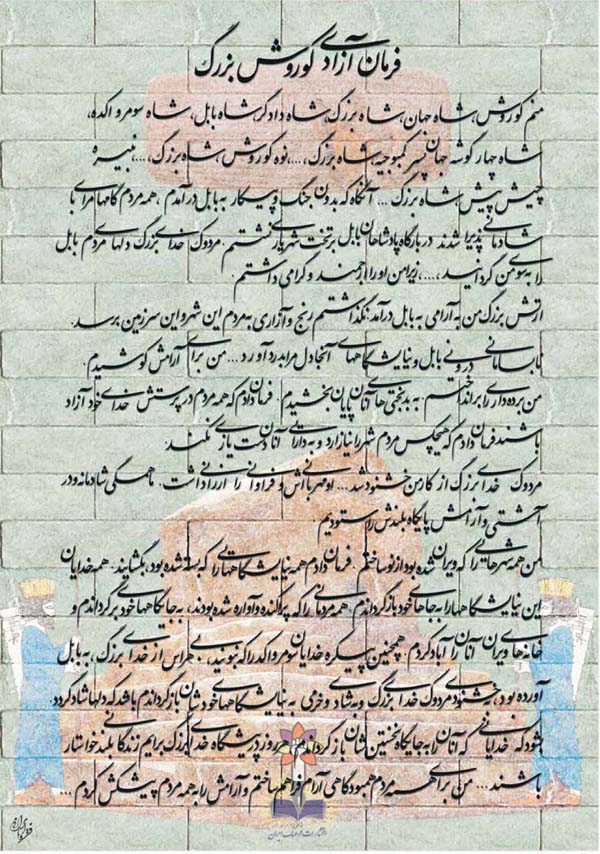 فرمان آزادی کوروش بزرگ
منم کوروش، شاه جهان، شاه بزرگ، شاه دادگر، شاه بابل، شاه سومر و اکد،
شاه چهار گوشه جهان، پسر کمبوجیه، شاه بزرگ، ...، نوه کوروش، شاه بزرگ، ...، نبیره
چیش پیش، شاه بزرگ ... آنگاه که بدون جنگ و پیکار به بابل درآمدم، همه مردم گامهای مرا با
شادمانی پذیرا شدند. در بارگاه پادشاهان بابل بر تخت شهریاری نشستم. مردوک خدای بزرگ دلهای مردم بابل
را به سوی من گردانید، ...، زیرا من او را ارجمند و گرامی داشتم.
ارتش بزرگ من به آرامی به بابل درآمد. نگذاشتم رنج و آزاری به مردم این شهر و این سرزمین برسد.
نابسامانی درونی بابل و نیایشگاههای آنجا دل مرا بدرد آورد ... من برای آرامش کوشیدم.
من برده داری را برانداختم، به بدبختی های آنان پایان بخشیدم. فرمان دادم که همه مردم در پرستش خدای خود آزاد
باشند. فرمان دادم که هیچکس مردم شهر را نیازارد و به دارایی آنان دست یازی نکند.
مردوک خدای بزرگ از کار من خشنود شد ... او مهربانی اش و فراوانی را ارزانی داشت. ما همگی شادمانه و در
آشتی و آرامش پایگاه بلندش را ستودیم
من همه شهرهایی را که ویران شده بود از نو ساختم. فرمان دادم همه نیایشگاههایی را که بسته شده بود، بگشایند. همه خدایان
این نیایشگاهها را به جاهای خود بازگرداندم. همه مردمانی را که پراکنده و آواره شده بودند، به جایگاههای خود برگرداندم و
خانه های ویران آنان را آباد کردم. همچنین پیکره خدایان سومر و اکد را که نبونید، بی هراس از خدای بزرگ، به بابل
آورده بود، به خشنودی مردوک خدای بزرگ و به شادی و خرمی به نیایشگاههای خودشان بازگرداندم باشد که دلها شاد گردد.
بشود که خدایانی که آنان را به جایگاه نخستین شان بازگرداندم، هر روز در پیشگاه خدای بزرگ برایم زندگانی بلند خواستار
باشند ... من برای همه مردم همبودگاهی آرام فراهم ساختم و آرامش را به همه مردم پیشکش کردم ...
انتشارات فرهنگ ایران